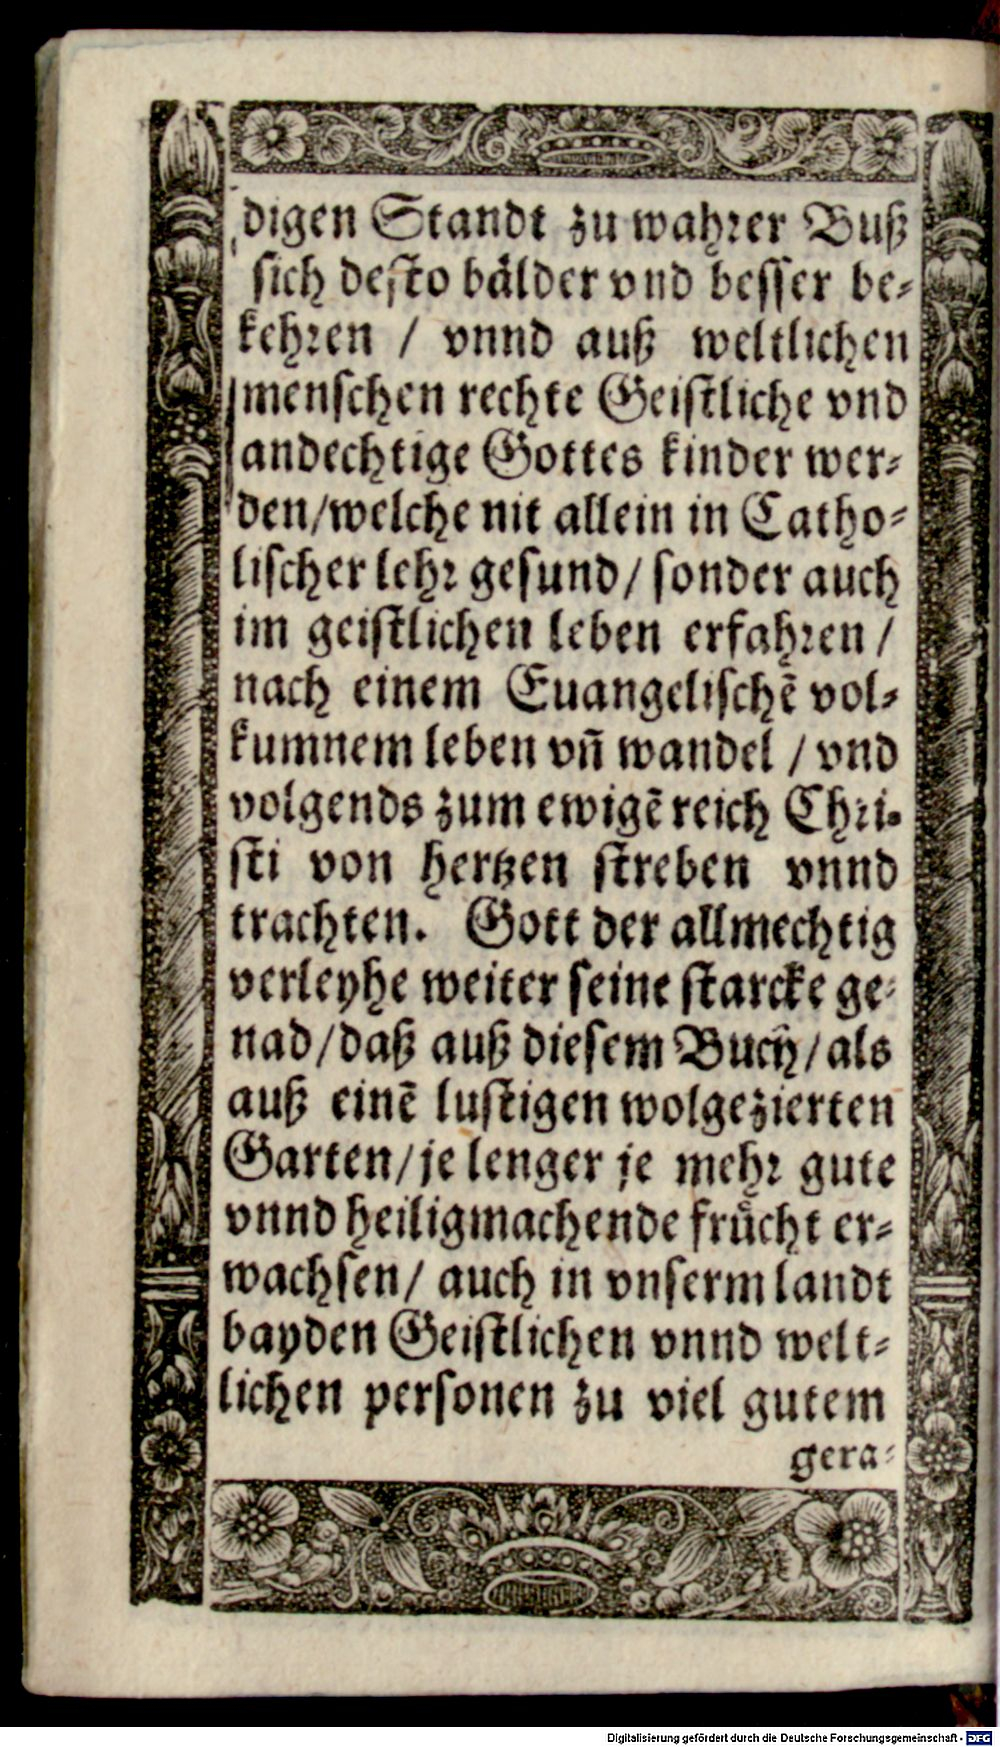 digen Standt zu wahrer Buß
sich desto bälder vnd besser be-
kehren / vnnd auß weltlichen
menschen rechte Geistliche vnd
andechtige Gottes kinder wer-
den/welche nit allein in Catho-
lischer lehr gesund/ sonder auch
im geistlichen leben erfahren /
nach einem Euangelischē vol-
kumnem leben vn̄ wandel / vnd
volgends zum ewigē reich Chri-
sti von hertzen streben vnnd
trachten. Gott der allmechtig
verleyhe weiter seine starcke ge-
nad/daß auß diesem Buch/als
auß einē lustigen wolgezierten
Garten/je lenger je mehr gute
vnnd heiligmachende frücht er-
wachsen/ auch in vnserm landt
bayden Geistlichen vnnd welt-
lichen personen zu viel gutem
gera-
Digitalisierung gefördert durch die Deutsche Forschungsgemeinschaft - DFG